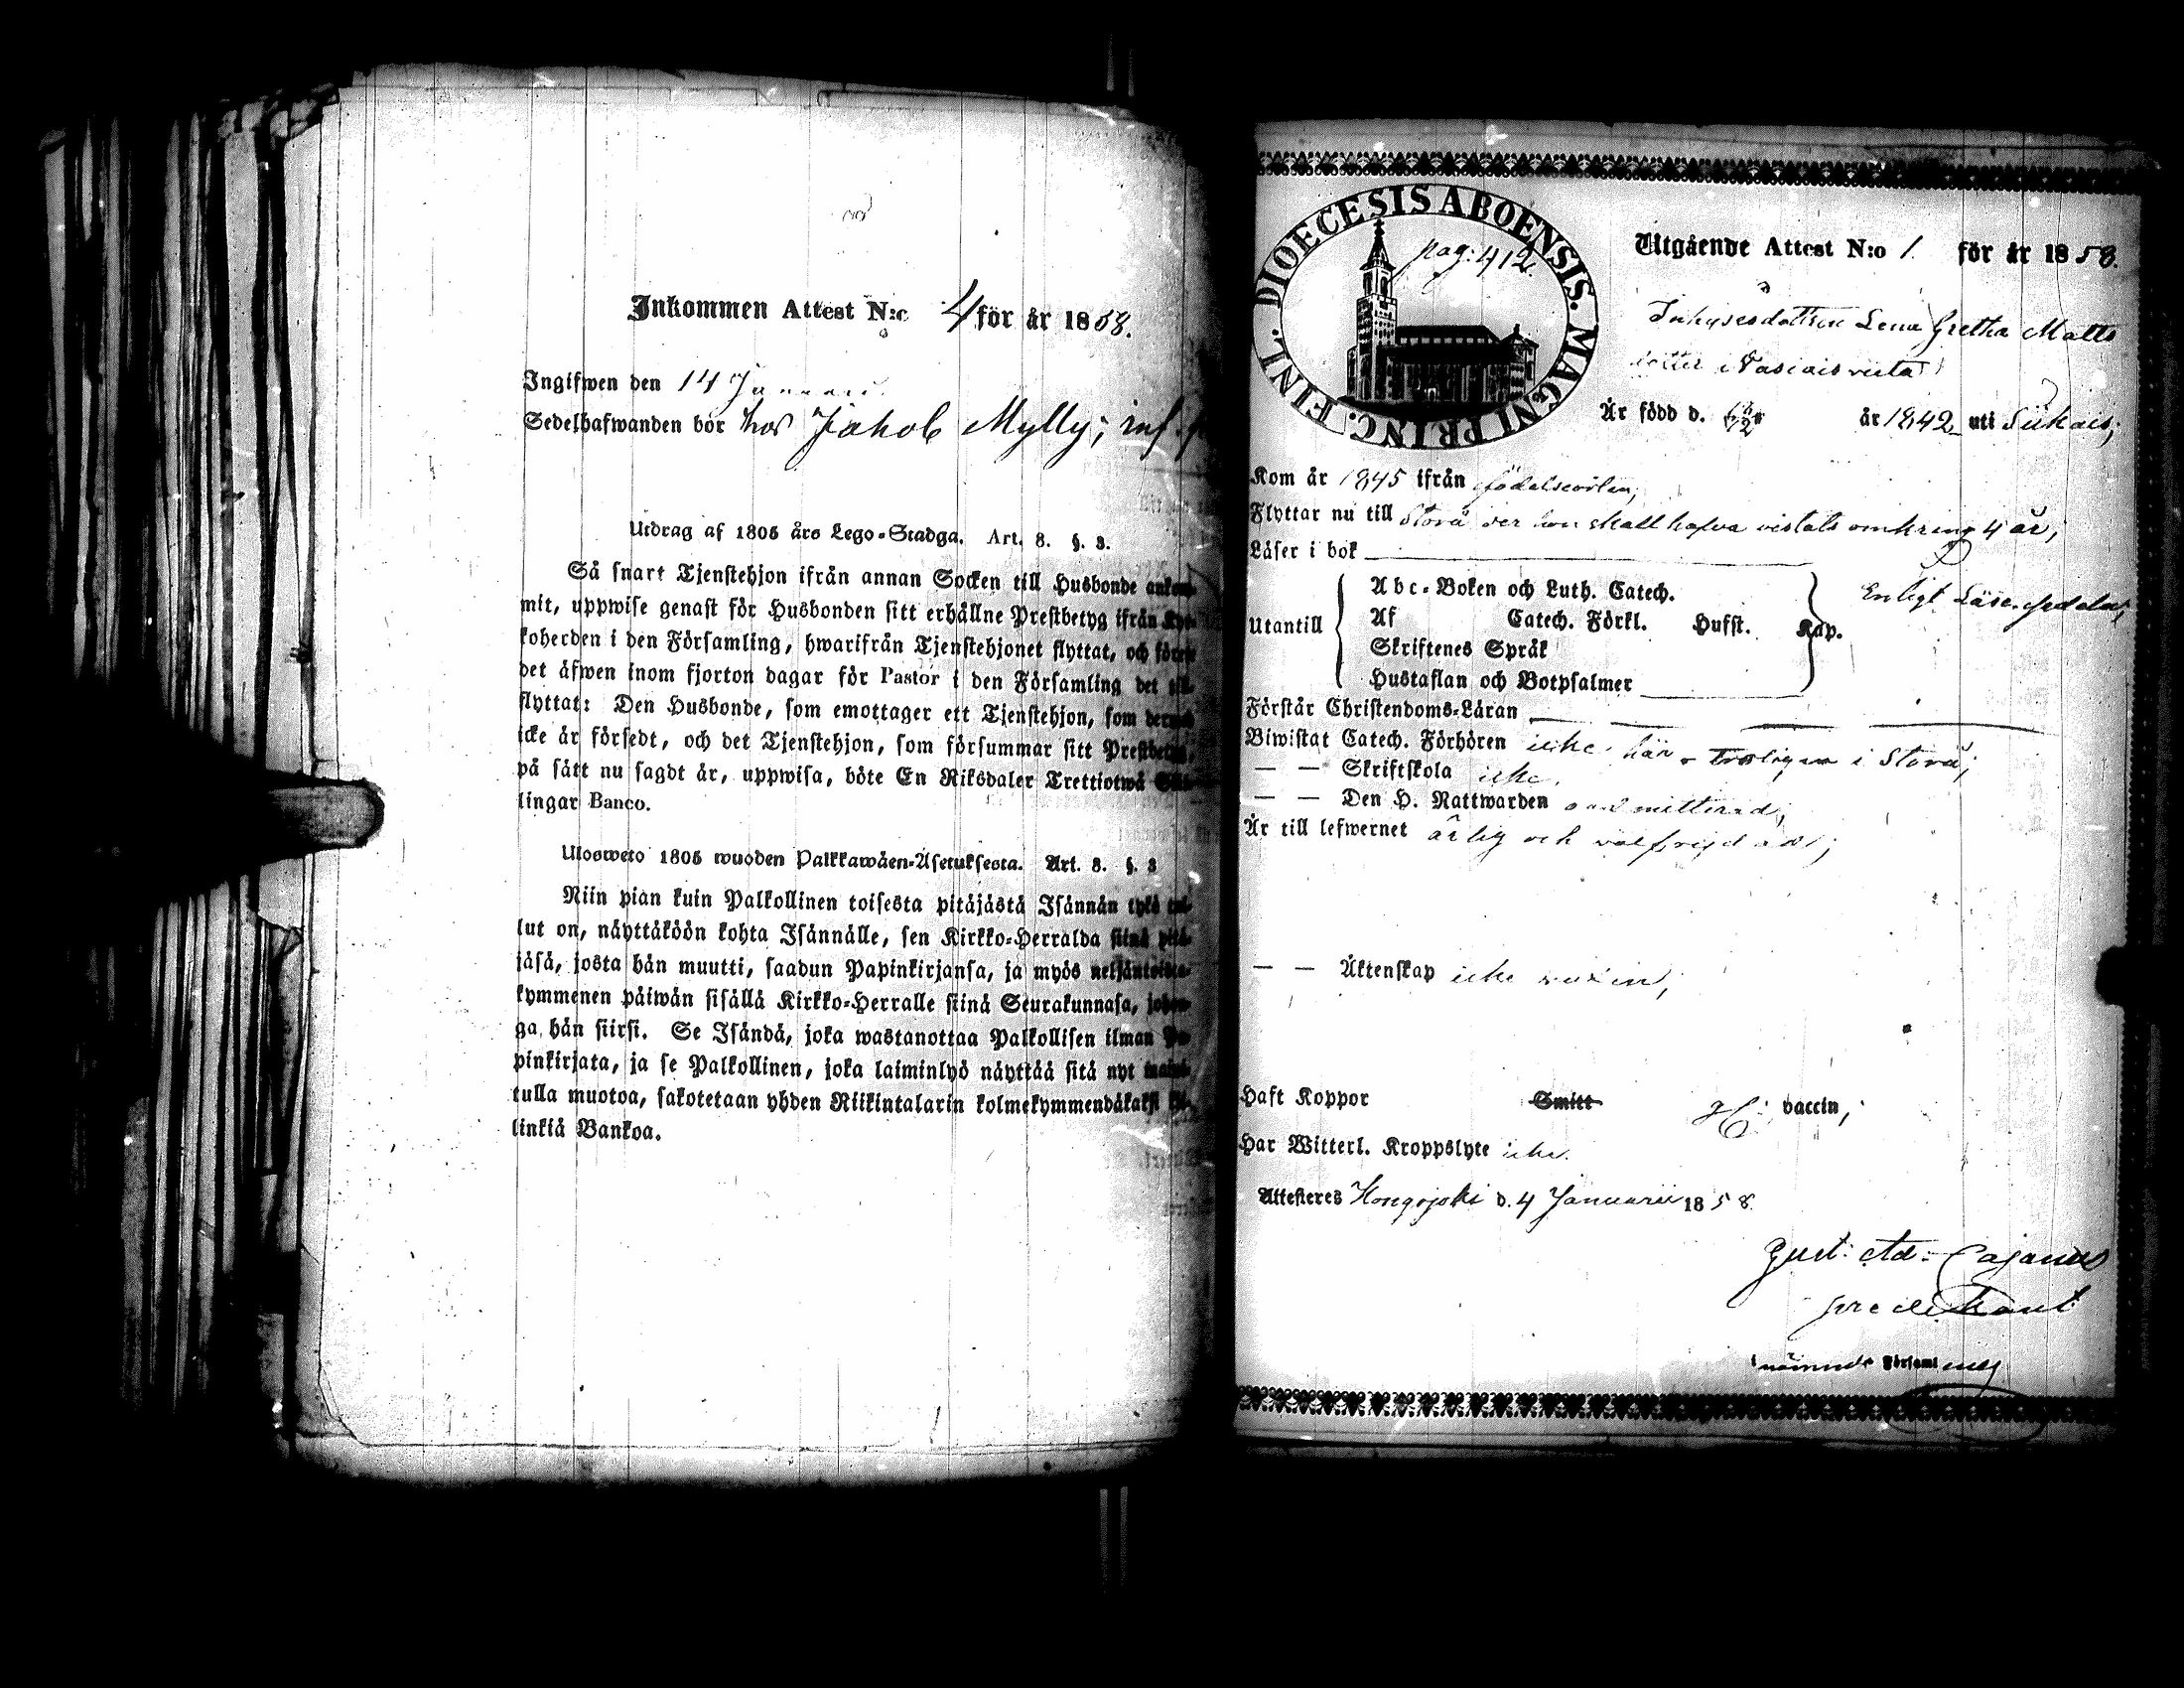 Inkommen Attest N:o 4 för år 1858.
Ingifwen den 14 Januari
Sedelhafwanden bor hos Jakob Mylly; inf.
Utdrag af 1805 års Lego-Stadga. Art. 8. §. 3.
Så snart Tjenstehjon ifrån annan Socken till Husbonde ankom-
mit, uppwise genast för Husbonden sitt erhållne Prestbetyg ifrån Kyr-
koherden i den Församling, hwarifrån Tjenstehjonet flyttat, och förete
det äfwen inom fjorton dagar för Pastor i den Församling det till-
flyttat: Den Husbonde, som emottager ett Tjenstehjon, som dermed
icke är försedt, och det Tjenstehjon, som försummar sitt Prestbetyg,
på sätt nu sagdt är, uppwisa, böte En Riksdaler Trettiotwå Skil-
lingar Banco.
Ulosweto 1805 wuoden Palkkawäen-Asetuksesta. Art. 8. §. 3
Niin pian kuin Palkollinen toisesta pitäjästä Isännän tykö tul-
lut on, näyttäköön kohta Isännälle, sen Kirkko-Herralda siinä pitä-
jäsä, josta hän muutti, saadun Papinkirjansa, ja myös neljäntoista-
kymmenen päiwän sisällä Kirkko-Herralle siinä Seurakunnasa, johon-
ga hän siirsi. Se Isändä, joka wastanottaa Palkollisen ilman Pa-
pinkirjata, ja se Palkollinen, joka laiminlyö näyttää sitä nyt maini-
tulla muotoa, sakotetaan yhden Riikintalarin kolmekymmendäkaksi kil-
linkiä Bankoa.
DIOECESIS ABOENSIS. MAGNI PRINC. FINL.
pag: 412.
Utgående Attest N:o 1. för år 1858.
Inhysesdottren Lena Gretha Matts
dotter
Är född d. år 1842 uti Siikais;
Kom år 1845 ifrån födelseorten;
Flyttar nu till Storå der hon skall hafva vistats omkring 4 år;
Läser i bok
Utantill
Abc-Boken och Luth. Catech.
Af Catech. Förkl. Hufst. Kap.
Skriftenes Språk
Hustaflan och Botpsalmer
Enligt Läse-sedeln;
Förstår Christendoms-Läran
Biwistat Catech. Förhören icke här - troligen i Storå;
— — Skriftskola icke.
— — Den H. Nattwarden oadmitterad;
Är till lefwernet ärlig och välfrejdad;
— — Äktenskap icke vuxen;
Haft Koppor Smitt vaccin;
Har Witterl. Kroppslyte icke.
Attesteres Hongojoki d. 4 Januarii 1858.
Gust: Ad: Cajanus
predikant
i nämnde Församling